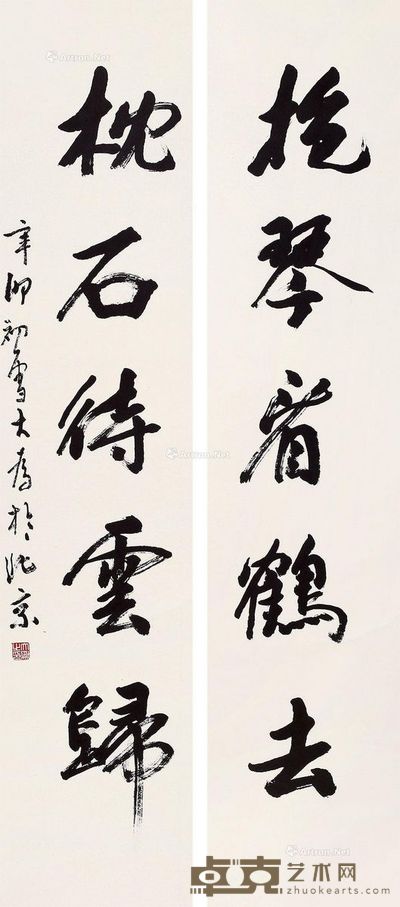 抱琴看鹤去
枕石待雲歸
辛卯初雪大為於北京
Artron.Net
Artron.Net
Artron.Net
Artron.Net
卓克艺术网
zhuokearts.com